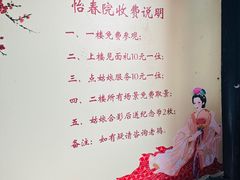 怡春院收费说明
一、一楼免费参观；
二、上楼见面礼10元一位；
三、点姑娘服务10元一位；
四、二楼所有场景免费取景；
五、姑娘合影后送纪念币2枚；
备注：如有疑请咨询老鸨。